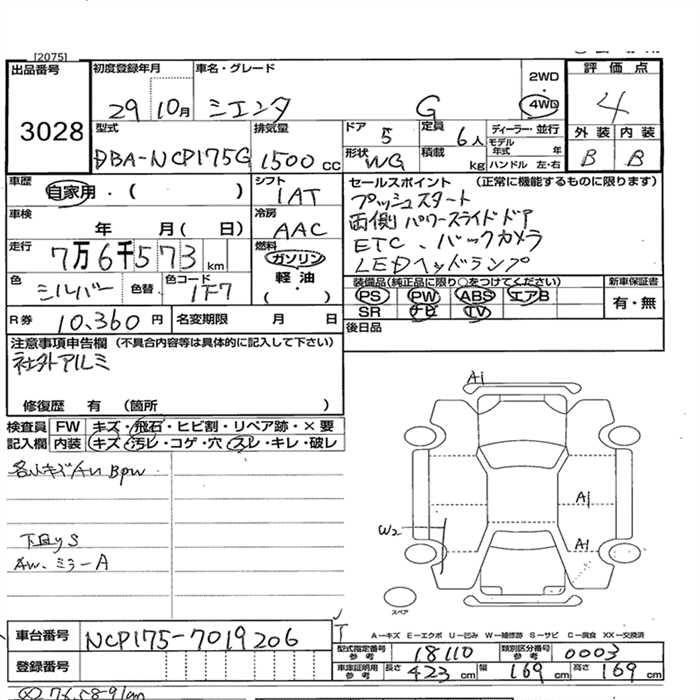 [2075]
出品番号
3028
初度登録年月
29 10月
車名・グレード
シエンタ G
2WD
4WD
評価点
4
外装 内装
B B
型式
DBA-NCP175G
排気量
1500cc
ドア 5
定員 6人
ディーラー・並行
モデル年式 年
形状 WG
積載 kg
ハンドル 左・右
車歴
自家用・( )
シフト
IAT
セールスポイント (正常に機能するものに限ります)
プッシュスタート
両側パワースライドドア
ETC、バックカメラ
LEDヘッドランプ
車検
年 月( 日)
冷房
AAC
走行
7万6千573km
燃料
ガソリン
軽・油
・( )
色
シルバー
色替
色コード
1F7
装備品(純正品に限り○をつけてください)
PS PW ABS エアB
SR ナビ TV
新車保証書
有・無
R券 10,360円
名変期限 月 日
後日品
注意事項申告欄 (不具合内容等は具体的に記入して下さい)
社外アルミ
修復歴 有 (箇所 )
検査員 FW キズ・飛石・ヒビ割・リペア跡・×要
記入欄 内装 キズ・汚レ・コゲ・穴・スレ・キレ・破レ
各小キズ/AU Bpw
下回りS
Aw、ミラーA
A1
A1
A1
W2
スペア
A−キズ E−エクボ U−凹み W−補修跡 S−サビ C−腐食 XX−交換済
車台番号 NCP175-7019206
型式指定番号参考 18110
類別区分番号参考 0003
登録番号
車庫証明用参考 長さ 423cm 幅 169cm 高さ 169cm